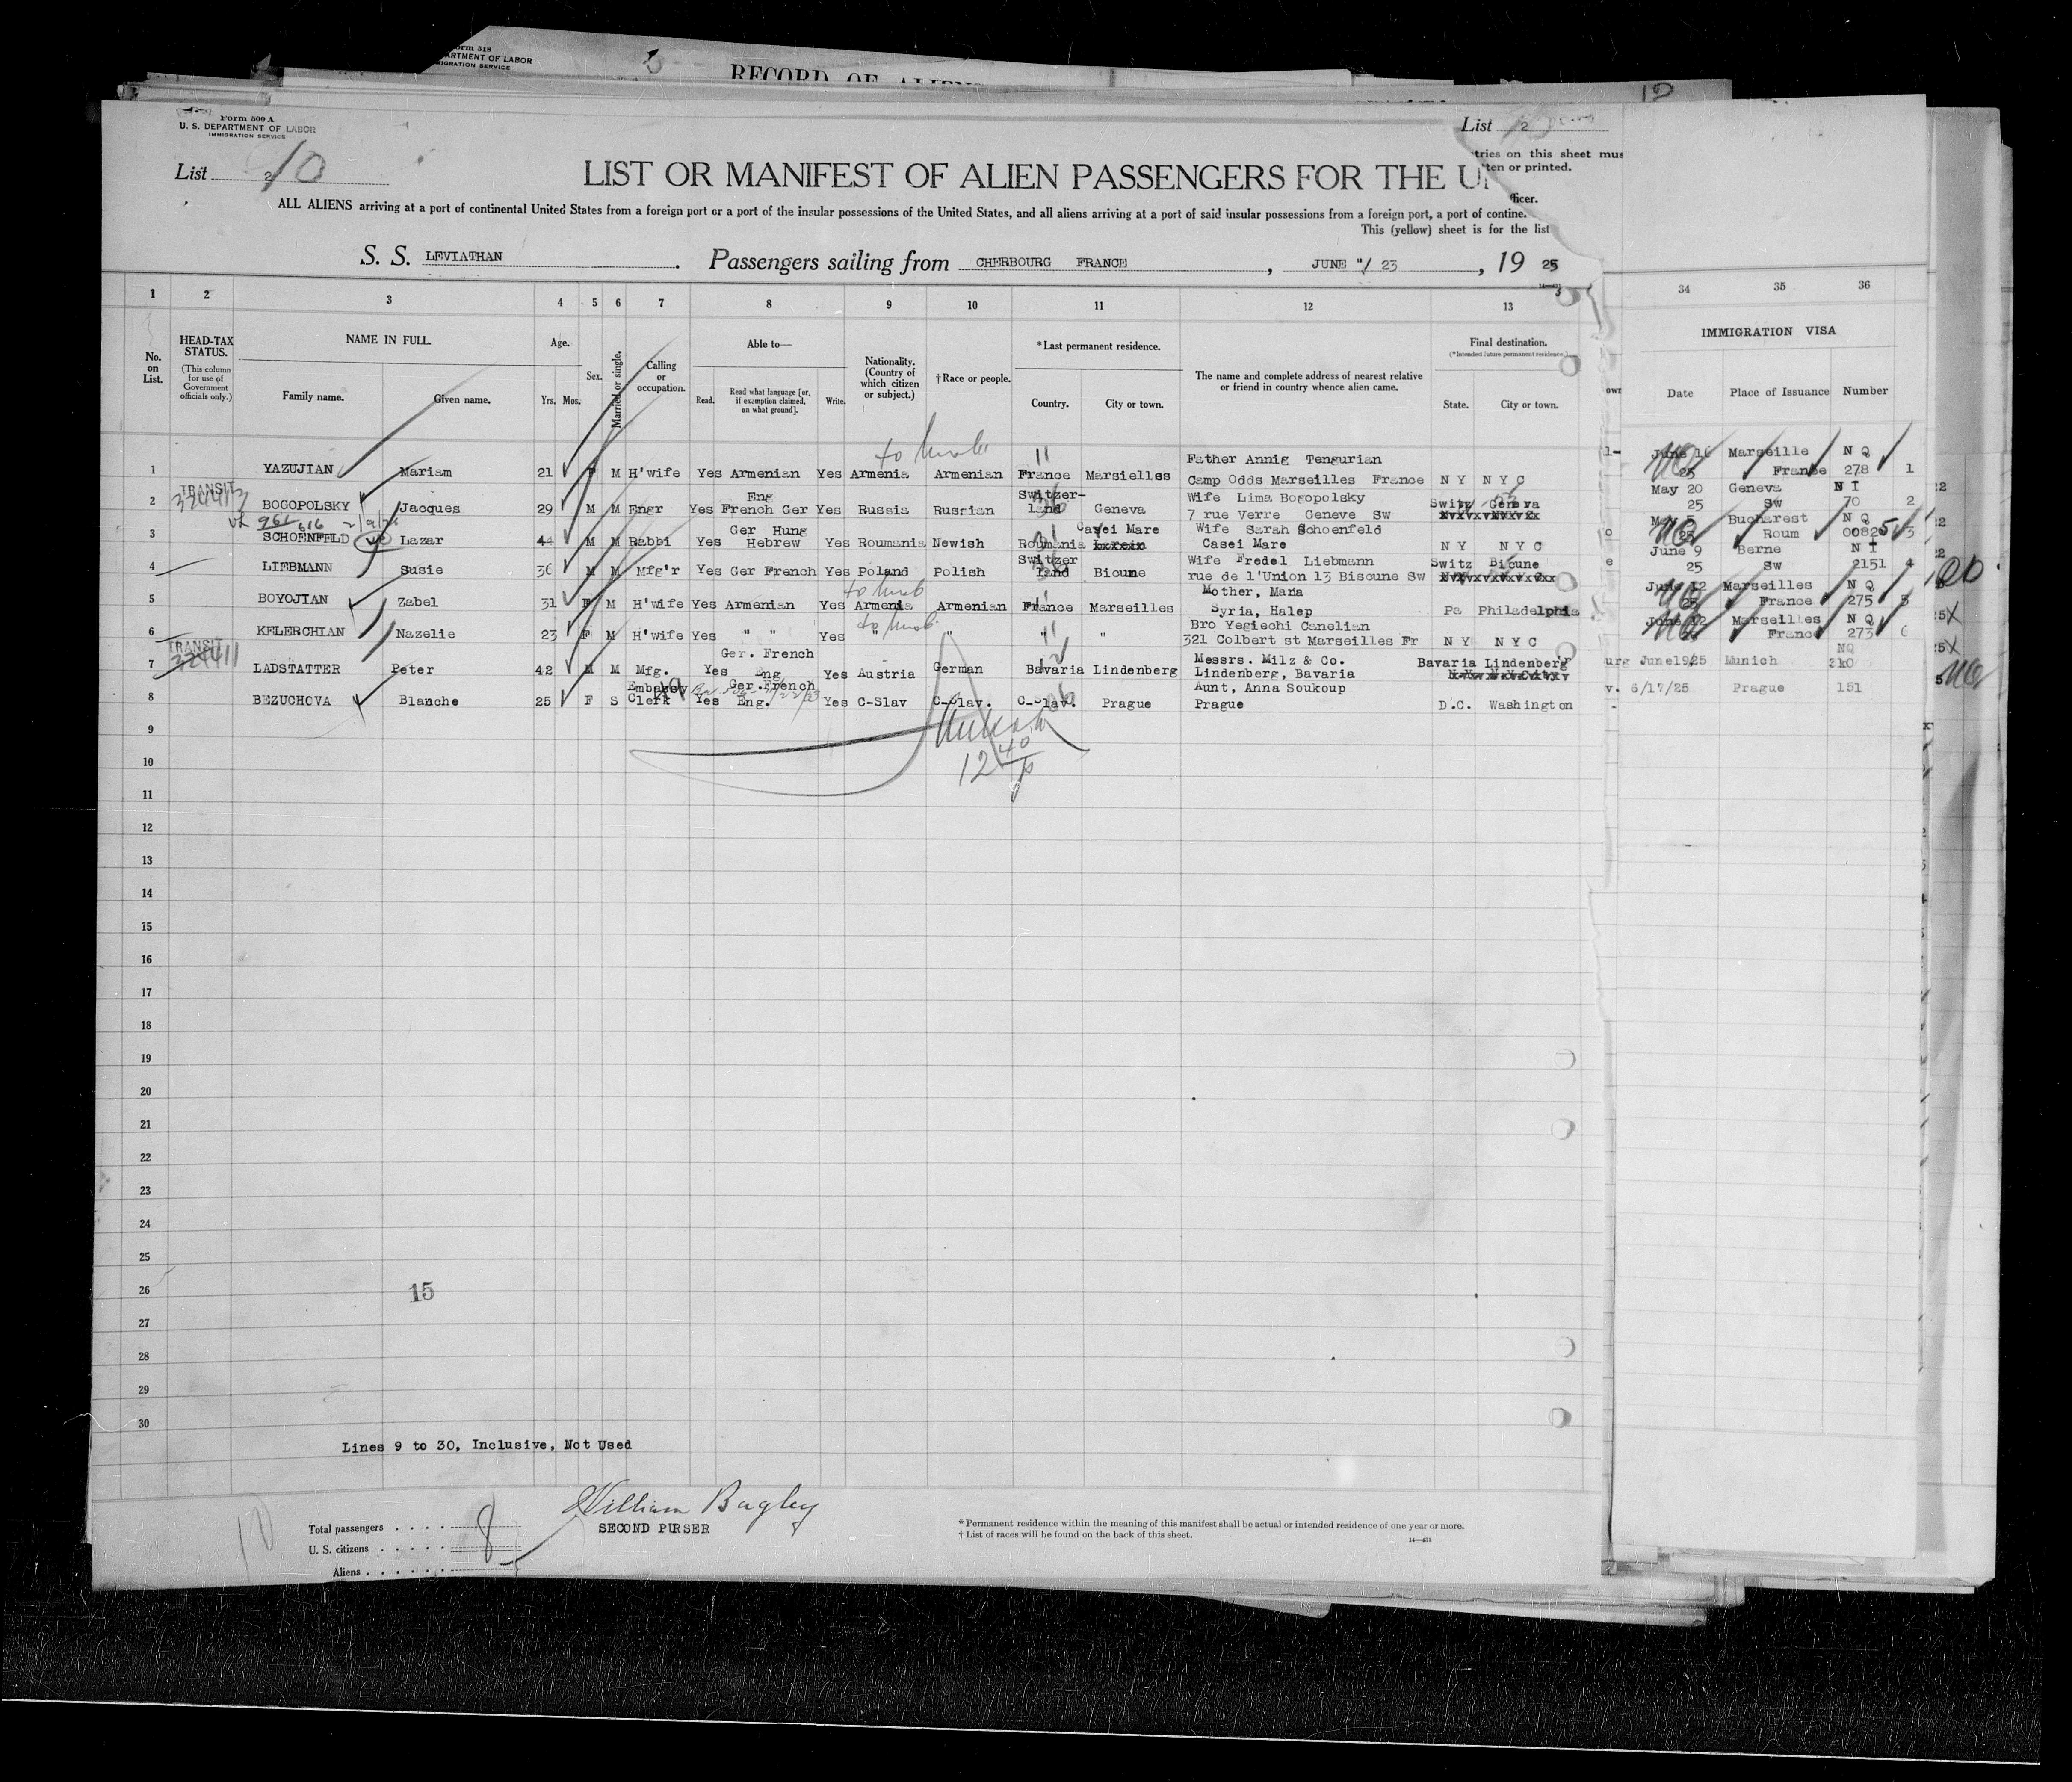 DEPARTMENT OF LABOR
RECORD OF
Form 500 A
U. S. DEPARTMENT OF LABOR
IMMIGRATION SERVICE
List 2
10
List 2
tries on this sheet mus
ten or printed.
LIST OR MANIFEST OF ALIEN PASSENGERS FOR THE U
ficer.
ALL ALIENS arriving at a port of continental United States from a foreign port or a port of the insular possessions of the United States, and all aliens arriving at a port of said insular possessions from a foreign port, a port of contine
This (yellow) sheet is for the list
S. S. LEVIATHAN . Passengers sailing from CHERBOURG FRANCE , JUNE "/ 23 , 19 25
1 2 3 4 5 6 7 8 9 10 11 12 13 34 35 36
No. on List.
HEAD-TAX STATUS.
(This column for use of Government officials only.)
NAME IN FULL.
Family name. Given name.
Age.
Yrs. Mos.
Sex.
Married or single.
Calling or occupation.
Able to—
Read. Read what language [or, if exemption claimed, on what ground]. Write.
Nationality. (Country of which citizen or subject.)
†Race or people.
*Last permanent residence.
Country. City or town.
The name and complete address of nearest relative or friend in country whence alien came.
Final destination.
(*Intended future permanent residence.)
State. City or town.
IMMIGRATION VISA
Date Place of Issuance Number
1 YAZUJIAN Mariam 21 F M H'wife Yes Armenian Yes Armenia Armenian France Marsielles Father Annig Tengurian
Camp Odds Marseilles France N Y N Y C June 16 25 Marseille France N Q 278 1
TRANSIT
324413
2 BOGOPOLSKY Jacques 29 M M Engr Yes Eng French Ger Yes Russia Rusrian Switzer-land Geneva Wife Lima Bogopolsky
7 rue Verre Geneve Sw Switz Geneva May 20 25 Geneva Sw N I 70 2
961 616
3 SCHOENFELD Lazar 44 M M Rabbi Yes Ger Hung Hebrew Yes Roumania Newish Roumania Casei Mare Wife Sarah Schoenfeld
Casei Mare N Y N Y C 25 Bucharest Roum N Q 00825 3
4 LIEBMANN Susie 36 M M Mfg'r Yes Ger French Yes Poland Polish Switzer land Bioune Wife Fredel Liebmann
rue de l'Union 13 Bisoune Sw Switz Bioune June 9 25 Berne Sw N I 2151 4
5 BOYOJIAN Zabel 31 F M H'wife Yes Armenian Yes Armenia Armenian France Marseilles Mother, Maria
Syria, Halep Pa Philadelphia June 12 25 Marseilles France N Q 275 5
6 KELERCHIAN Nazelie 23 F M H'wife Yes " " Yes " " " " Bro Yegiechi Canelian
321 Colbert st Marseilles Fr N Y N Y C June 12 Marseilles France N Q 273 6
TRANSIT
324411
7 LADSTATTER Peter 42 M M Mfg. Yes Ger. French Eng Yes Austria German Bavaria Lindenberg Messrs. Milz & Co.
Lindenberg, Bavaria Bavaria Lindenberg June 19/25 Munich NQ 310
8 BEZUCHOVA Blanche 25 F S Embassy Clerk Yes Ger. French Eng. Yes C-Slav C-Slav. C-Slav. Prague Aunt, Anna Soukoup
Prague D.C. Washington 6/17/25 Prague 151
9
10
11
12
13
14
15
16
17
18
19
20
21
22
23
24
25
26
15
27
28
29
30
Lines 9 to 30, Inclusive, Not Used
William Bagley
SECOND PURSER
Total passengers . . . . 8
U. S. citizens . . . . .
Aliens . . . . . . .
* Permanent residence within the meaning of this manifest shall be actual or intended residence of one year or more.
† List of races will be found on the back of this sheet.